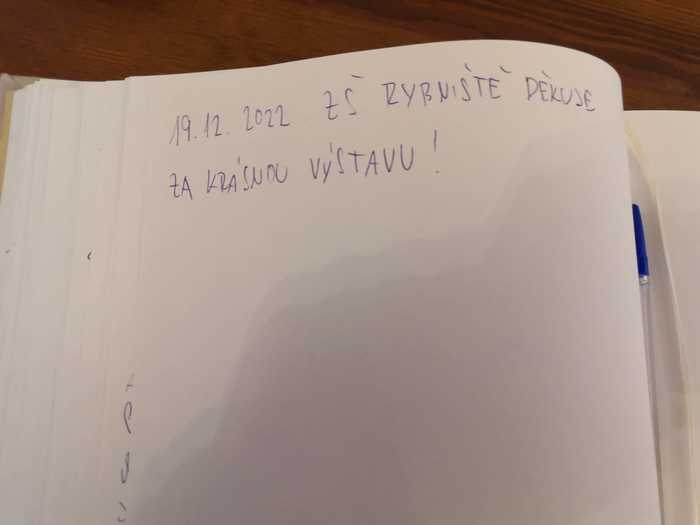 19.12.2022 ZŠ RYBNIŠTĚ DĚKUJE
ZA KRÁSNOU VÝSTAVU!